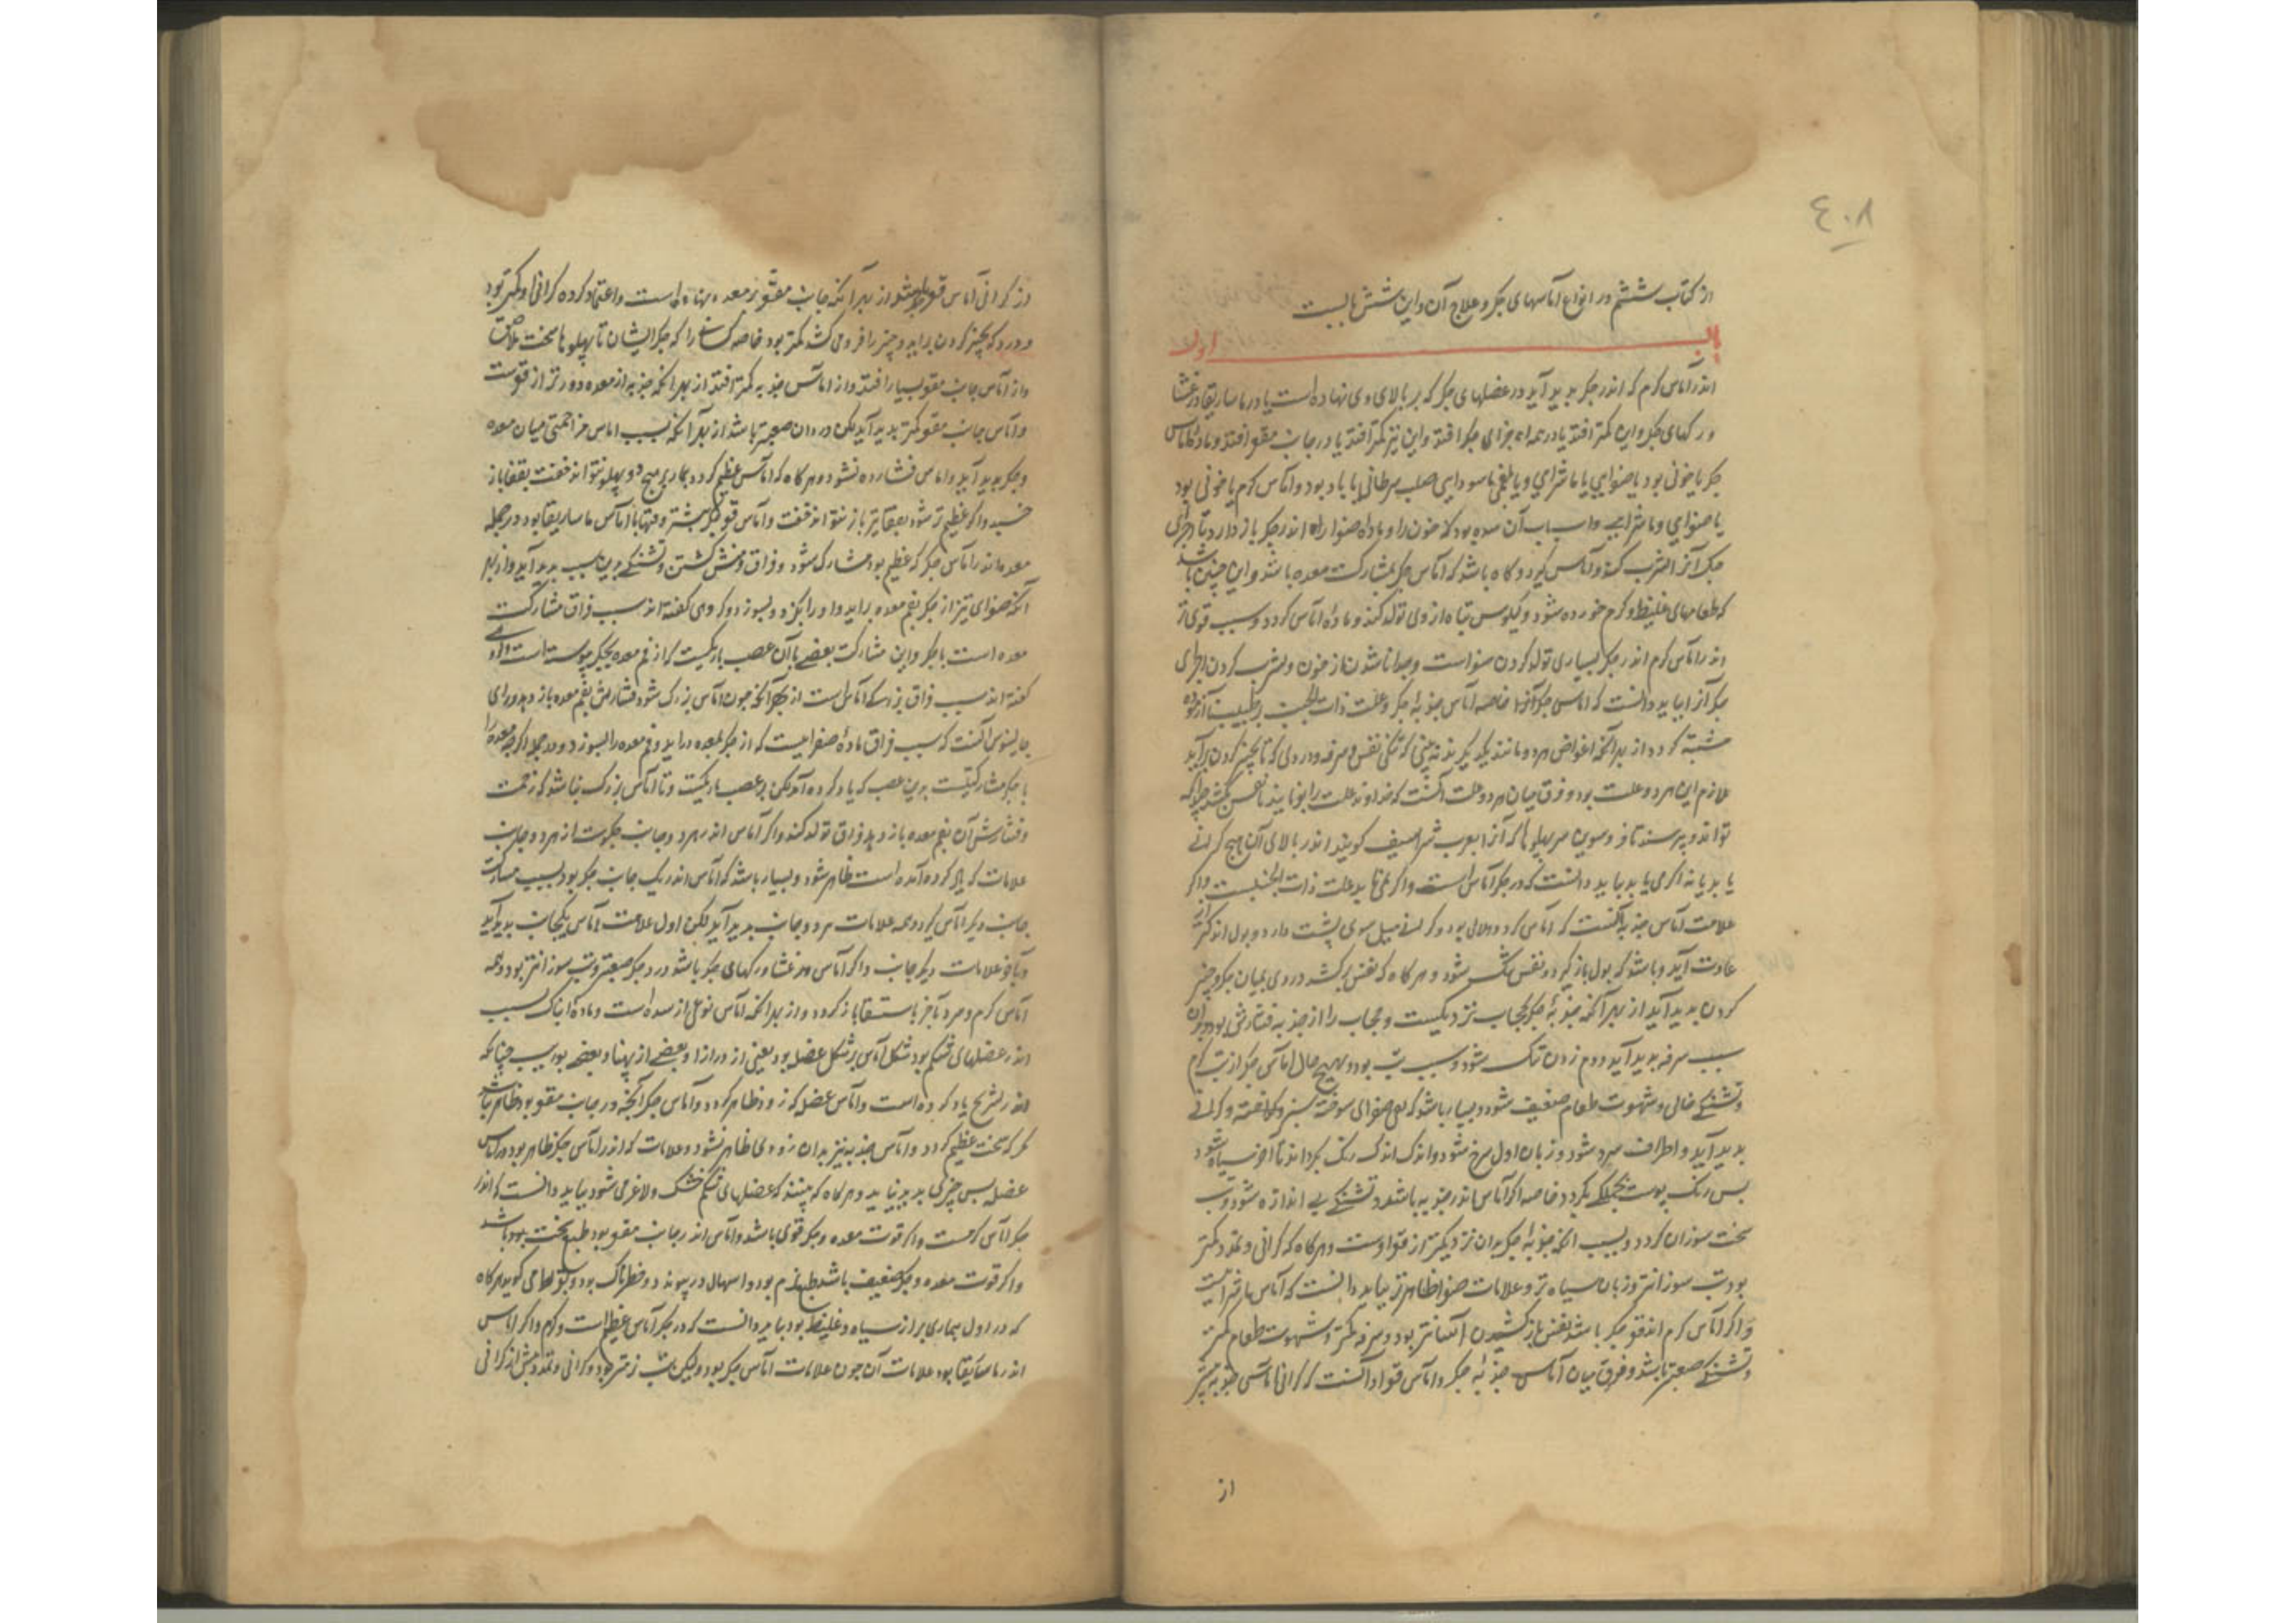 ٤٠٨
از کتاب ششم در انواع آماسهای جکر و علاج آن و این شش بابست
باب اول
اندر آماس کرم که اندر جکر بدید آید و در عضلهای جکر که بر بالای وی نهاده است یا در ماساریقا و در غشا
و رکهای جکر و این کمتر افتد یا در همه اجزای جکر افتد و این نیز کمتر افتد یا در جانب مقعر افتد و ماده آماس
جکر یا خونی بود یا صفرایی یا ماشرایی و یا بلغمی یا سودایی صلب سرطانی یا باد بود و آماس کرم یا خونی بود
یا صفرایی و ماشرایی و اسباب آن سده بود که خون را و ماده صفرا را اندر جکر باز دارد تا اجزای
جکر آنرا تشرب کند و آماس کیرد و کاه باشد که آماس جکر بمشارکت معده باشد و این چنین باشد
که طعامهای غلیظ و کرم خورده شود و کیلوس تباه از وی تولد کند و ماده آماس کردد و سبب قوی تر
اندر آماس کرم اندر جکر بسیاری تولد کردن صفراست و جدا ناشدن از خون و تشرب کردن اجزای
جکر آنرا بباید دانست که آماس جکر خاصه آماس حدبه جکر و علت ذات الجنب بر طبیب آزموده
مشتبه کردد از بهر آنکه اعراض هر دو مانند یکدیکرند نه بینی که تنکی نفس و سرفه و دردی که تا بچنبر کردن برآید
لازم این هر دو علت بود و فرق میان هر دو علت آنست که خداوند علت را بفرمایند تا نفس کشد چندانکه
تواند و بپرسند تا فروسوی سر پهلوها که آنرا بعرب شراسیف کویند اندر بالای آن هیچ کرانی
یابد یا نه اکر می یابد بباید دانست که در جکر آماس است و اکر نمی یابد علت ذات الجنبست و اکر
علامت آماس حدبه آنست که آماس کرد و هلالی بود و کرانی میل سوی پشت دارد و بول اندکتر از
عادت آید و باشد که بول باز کیرد و نفس تنک شود و هرکاه که نفس برکشد دردی میان جکر و چنبر
کردن بدید آید از بهر آنکه حدبه جکر بحجاب نزدیکست و حجاب را از حدبه فشارشی بود و بدان
سبب سرفه بدید آید و دم زدن تنک شود و سبب تب بود و بهیچ حال آماس جکر از تب کرم
و تشنکی خالی و شهوت طعام ضعیف شود و بسیار باشد که قی صفرای سوخته سبز و کرانی
بدید آید و اطراف سرد شود و زبان اول سرخ شود و اندک اندک رنک بکرداند تا آخر سیاه شود
بس رنک پوست بجملکی بکردد خاصه اکر آماس اندر حدبه باشد و تشنکی بی اندازه شود و تب
سخت سوزان کردد و بسبب آنکه حدبه جکر بدان نزدیکتر از مقعر اوست و هرکاه که کرانی و تمدد کمتر
بود تب سوزانتر و زبان سیاه تر و علامات صفرا ظاهرتر بباید دانست که آماس ماشراییست
و اکر آماس کرم اندر مقعر جکر باشد نفس باز کشیدن آسانتر بود و سرفه کمتر و شهوت طعام کمتر
و تشنکی صعبتر باشد و فرق میان آماس حدبه جکر و آماس مقعر او آنست که کرانی آماس حدبه بیشتر
از
از کرانی آماس مقعر باشد از بهر آنکه جانب مقعر بر معده نهاده است و اعتماد کرده کرانی او کمتر بود
و درد که بچنبر کردن برآید و چنبر را فرو می کشد کمتر بود خاصه کسانی را که جکر ایشان تا پهلوها سخت ملاصق
و از آماس جانب مقعر بسیار افتد و از آماس حدبه کمتر افتد از بهر آنکه حدبه از معده دورتر از مقعرست
و آماس جانب مقعر کمتر بدید آید لکن درد آن صعبتر باشد از بهر آنکه بسبب آماس مزاحمتی میان معده
و جکر بدید آید و آماس فشارده شود و هرکاه که آماس عظیم کردد بیمار بر هیچ دو پهلو نتواند خفت بقفا باز
خسبد و اکر عظیم تر شود بقفا نیز باز نتواند خفت و آماس مقعر جکر بیشتر وقتها با آماس ماساریقا بود در جمله
معده اندر آماس جکر که عظیم بود مشارک شود و فواق و منش کشتن و تشنکی بدین سبب بدید آید و از بهر
آنکه صفرای تیز از جکر بفم معده برآید و او را بکزد و بسوزد و کروهی کفته اند سبب فواق مشارکت
معده است با جکر و این مشارکت بعضی با آن عصب باریکیست که از فم معده بجکر پیوسته است و کروهی
کفته اند سبب فواق بزرکی آماس است از بهر آنکه چون آماس بزرک شود فشارش بفم معده باز دهد و رای
جالینوس آنست که سبب فواق ماده صفراییست که از جکر بمعده درآید و فم معده را بسوزد و در جمله اکرچه معده را
با جکر مشارکتیست بدین عصب که یاد کرده آمد لکن این عصب باریکیست و تا آماس بزرک نباشد که زحمت
و فشارش آن بفم معده باز دهد فواق تولد نکند و اکر آماس اندر هر دو جانب جکرست از هر دو جانب
علامات که یاد کرده آمده است ظاهر شود و بسیار باشد که آماس اندر یک جانب جکر بود بسبب مشارکت
جانب دیکر آماس کیرد و همه علامات هر دو جانب بدید آید لکن اول علامت آماس یکجانب بدید آید
و باقی علامات دیکر جانب و اکر آماس در غشا و رکهای جکر باشد درد جکر صعبتر و تب سوزانتر بود و همه
آماس کرم و سرد باخر باستسقا باز کردد و از بهر آنکه آماس نوعی از سده است و ماده
اندر عضلهای شکم بود شکل آماس بر شکل عضل بود یعنی از درازا و بعضی از پهنا و بعضی بوریب چنانکه
اندر تشریح یاد کرده است و آماس عضل که زود ظاهر کردد و آماس جکر آنچه در جانب مقعر بود ظاهر نباشد
مکر که سخت عظیم کردد و آماس حدبه نیز بدان زودی ظاهر نشود و علامات که اندر آماس جکر ظاهر بود در آماس
عضل بس چیزی بدید نیاید و هرکاه که بینند که عضلهای شکم خشک و لاغر می شود بباید دانست که اندر
جکر آماس کرمست و اکر قوت معده و جکر قوی باشد و آماس اندر جانب مقعر بود طبع سخت بود باشد
و اکر قوت معده و جکر ضعیف باشد طبع نرم بود و اسهال در پیوندد و خطرناک بود و بقراط می کوید هرکاه
که در اول بیماری براز سیاه و غلیظ بود بباید دانست که در جکر آماس عظیم است و کرم و اکر آماس
اندر ماساریقا بود علامات آن چون علامات آماس جکر بود ولیکن تب نرمتر بود و کرانی و تمدد بیش از کرانی